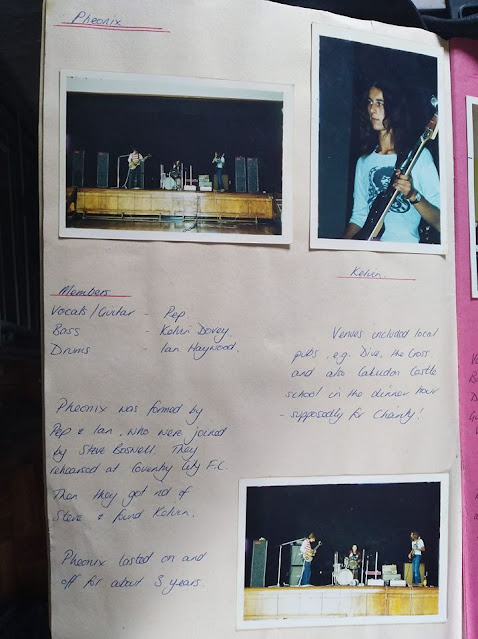 Pheonix
Kelvin.
Members
Vocals/Guitar - Pep
Bass - Kelvin Dovey
Drums - Ian Haywood.
Venues included local
pubs, e.g. Dive, the Cross
and also Caludon Castle
school in the dinner hour
- supposedly for Charity!
Pheonix was formed by
Pep & Ian, who were joined
by Steve Boswell. They
rehearsed at Coventry City F.C.
Then they got rid of
Steve & found Kelvin.
Pheonix lasted on and
off for about 3 years.